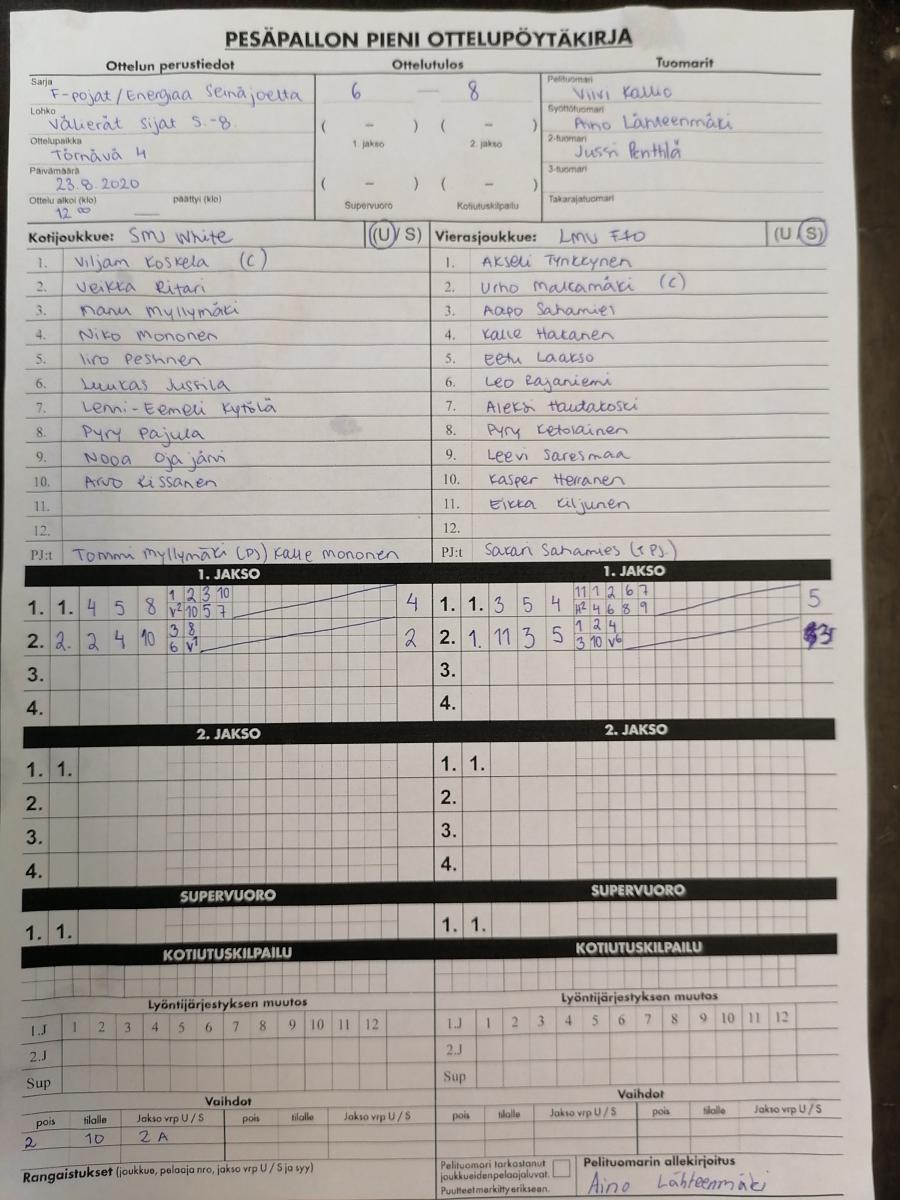 PESÄPALLON PIENI OTTELUPÖYTÄKIRJA
Ottelun perustiedot
Sarja
F-pojat/Energiaa Seinäjoelta
Lohko
Välierät sijat 5.-8.
Ottelupaikka
Törnävä 4
Päivämäärä
23.8.2020
Ottelu alkoi (klo) päättyi (klo)
12 00 —
Ottelutulos
6 — 8
( – ) ( – )
1. jakso 2. jakso
( – ) ( – )
Supervuoro Kotiutuskilpailu
Tuomarit
Pelituomari
Viivi Kallio
Syöttötuomari
Aino Lähteenmäki
2-tuomari
Jussi Penttilä
3-tuomari
Takarajatuomari
Kotijoukkue: SMJ White (U/ S)
1. Viljam Koskela (C)
2. Veikka Ritari
3. Manu Myllymäki
4. Niko Mononen
5. Iiro
6. Luukas Jussila
7. Lenni-Eemeli Kytölä
8. Pyry Pajula
9. Nooa Ojajärvi
10. Arvo Kissanen
11.
12.
PJ:t Tommi Myllymäki (PJ) Kalle Mononen
Vierasjoukkue: LMV F10 (U S)
1. Akseli Tynkkynen
2. Urho Malkamäki (C)
3. Aapo Sahamies
4. Kalle Hakanen
5. Eetu Laakso
6. Leo Rajaniemi
7. Aleksi Hautakoski
8. Pyry Ketolainen
9. Leevi Saresmaa
10. Kasper Herranen
11. Eikka Kiljunen
12.
PJ:t Sakari Sahamies
1. JAKSO
1 2 3 10
1. 1. 4 5 8 V2 10 5 7 4
3 8
2. 2. 2 4 10 6 V1 2
3.
4.
1. JAKSO
11 1 2 6 7
1. 1. 3 5 4 H2 4 6 8 9 5
1 2 4
2. 1. 11 3 5 3 10 V6 3
3.
4.
2. JAKSO
1. 1.
2.
3.
4.
2. JAKSO
1. 1.
2.
3.
4.
SUPERVUORO
1. 1.
SUPERVUORO
1. 1.
KOTIUTUSKILPAILU
KOTIUTUSKILPAILU
Lyöntijärjestyksen muutos
1.J 1 2 3 4 5 6 7 8 9 10 11 12
2.J
Sup
Lyöntijärjestyksen muutos
1.J 1 2 3 4 5 6 7 8 9 10 11 12
2.J
Sup
Vaihdot
pois tilalle Jakso vrp U / S pois tilalle Jakso vrp U / S
2 10 2 A
Vaihdot
pois tilalle Jakso vrp U / S pois tilalle Jakso vrp U / S
Rangaistukset (joukkue, pelaaja nro, jakso vrp U / S ja syy)
Pelituomari tarkastanut
joukkueidenpelaajaluvat.
Puutteet merkitty erikseen.
Pelituomarin allekirjoitus
Aino Lähteenmäki